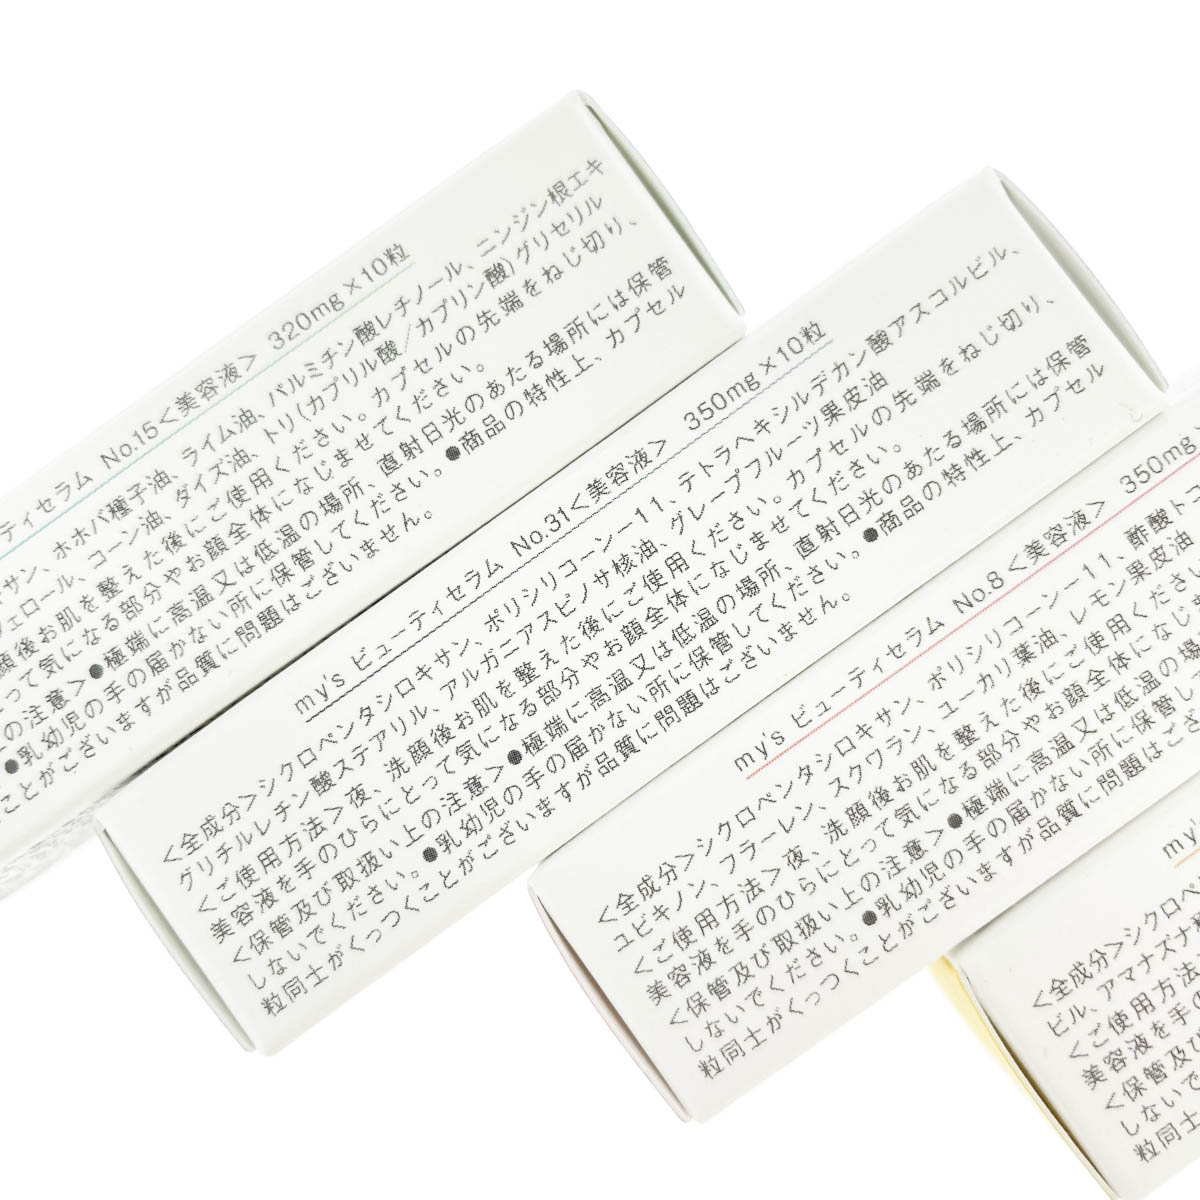 ティセラム No.15<美容液> 320mg×10粒
サン、ホホバ種子油、ライム油、パルミチン酸レチノール、ニンジン根エキ
フェロール、コーン油、ダイズ油、トリ(カプリル酸/カプリン酸)グリセリル
顔後お肌を整えた後にご使用ください。カプセルの先端をねじ切り、
って気になる部分やお顔全体になじませてください。
の注意>●極端に高温又は低温の場所、直射日光のあたる場所には保管
●乳幼児の手の届かない所に保管してください。●商品の特性上、カプセル
ことがございますが品質に問題はございません。
my's ビューティセラム No.31<美容液> 350mg×10粒
<全成分>シクロペンタシロキサン、ポリシリコーン-11、テトラヘキシルデカン酸アスコルビル、
グリチルレチン酸ステアリル、アルガニアスピノサ核油、グレープフルーツ果皮油
<ご使用方法>夜、洗顔後お肌を整えた後にご使用ください。カプセルの先端をねじ切り、
美容液を手のひらにとって気になる部分やお顔全体になじませてください。
<保管及び取扱い上の注意>●極端に高温又は低温の場所、直射日光のあたる場所には保管
しないでください。●乳幼児の手の届かない所に保管してください。●商品の特性上、カプセル
粒同士がくっつくことがございますが品質に問題はございません。
my's ビューティセラム No.8<美容液> 350mg
<全成分>シクロペンタシロキサン、ポリシリコーン-11、酢酸トコ
ユビキノン、フラーレン、スクワラン、ユーカリ葉油、レモン果皮油
<ご使用方法>夜、洗顔後お肌を整えた後にご使用くださ
美容液を手のひらにとって気になる部分やお顔全体になじ
<保管及び取扱い上の注意>●極端に高温又は低温の場
しないでください。●乳幼児の手の届かない所に保管し
粒同士がくっつくことがございますが品質に問題はござ
my's
<全成分>シクロペ
ビル、アマナズナ種
<ご使用方法
美容液を手の
<保管及び
しないで
粒同士